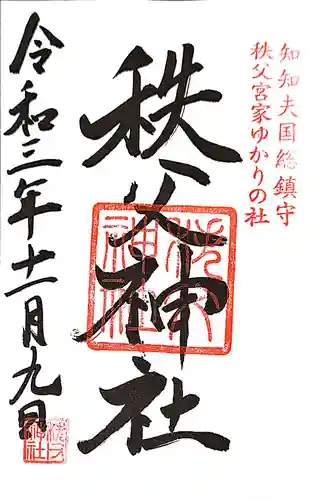 知知夫国総鎮守
秩父宮家ゆかりの社
秩父神社
令和三年十一月九日
秩父
神社
秩父
神社